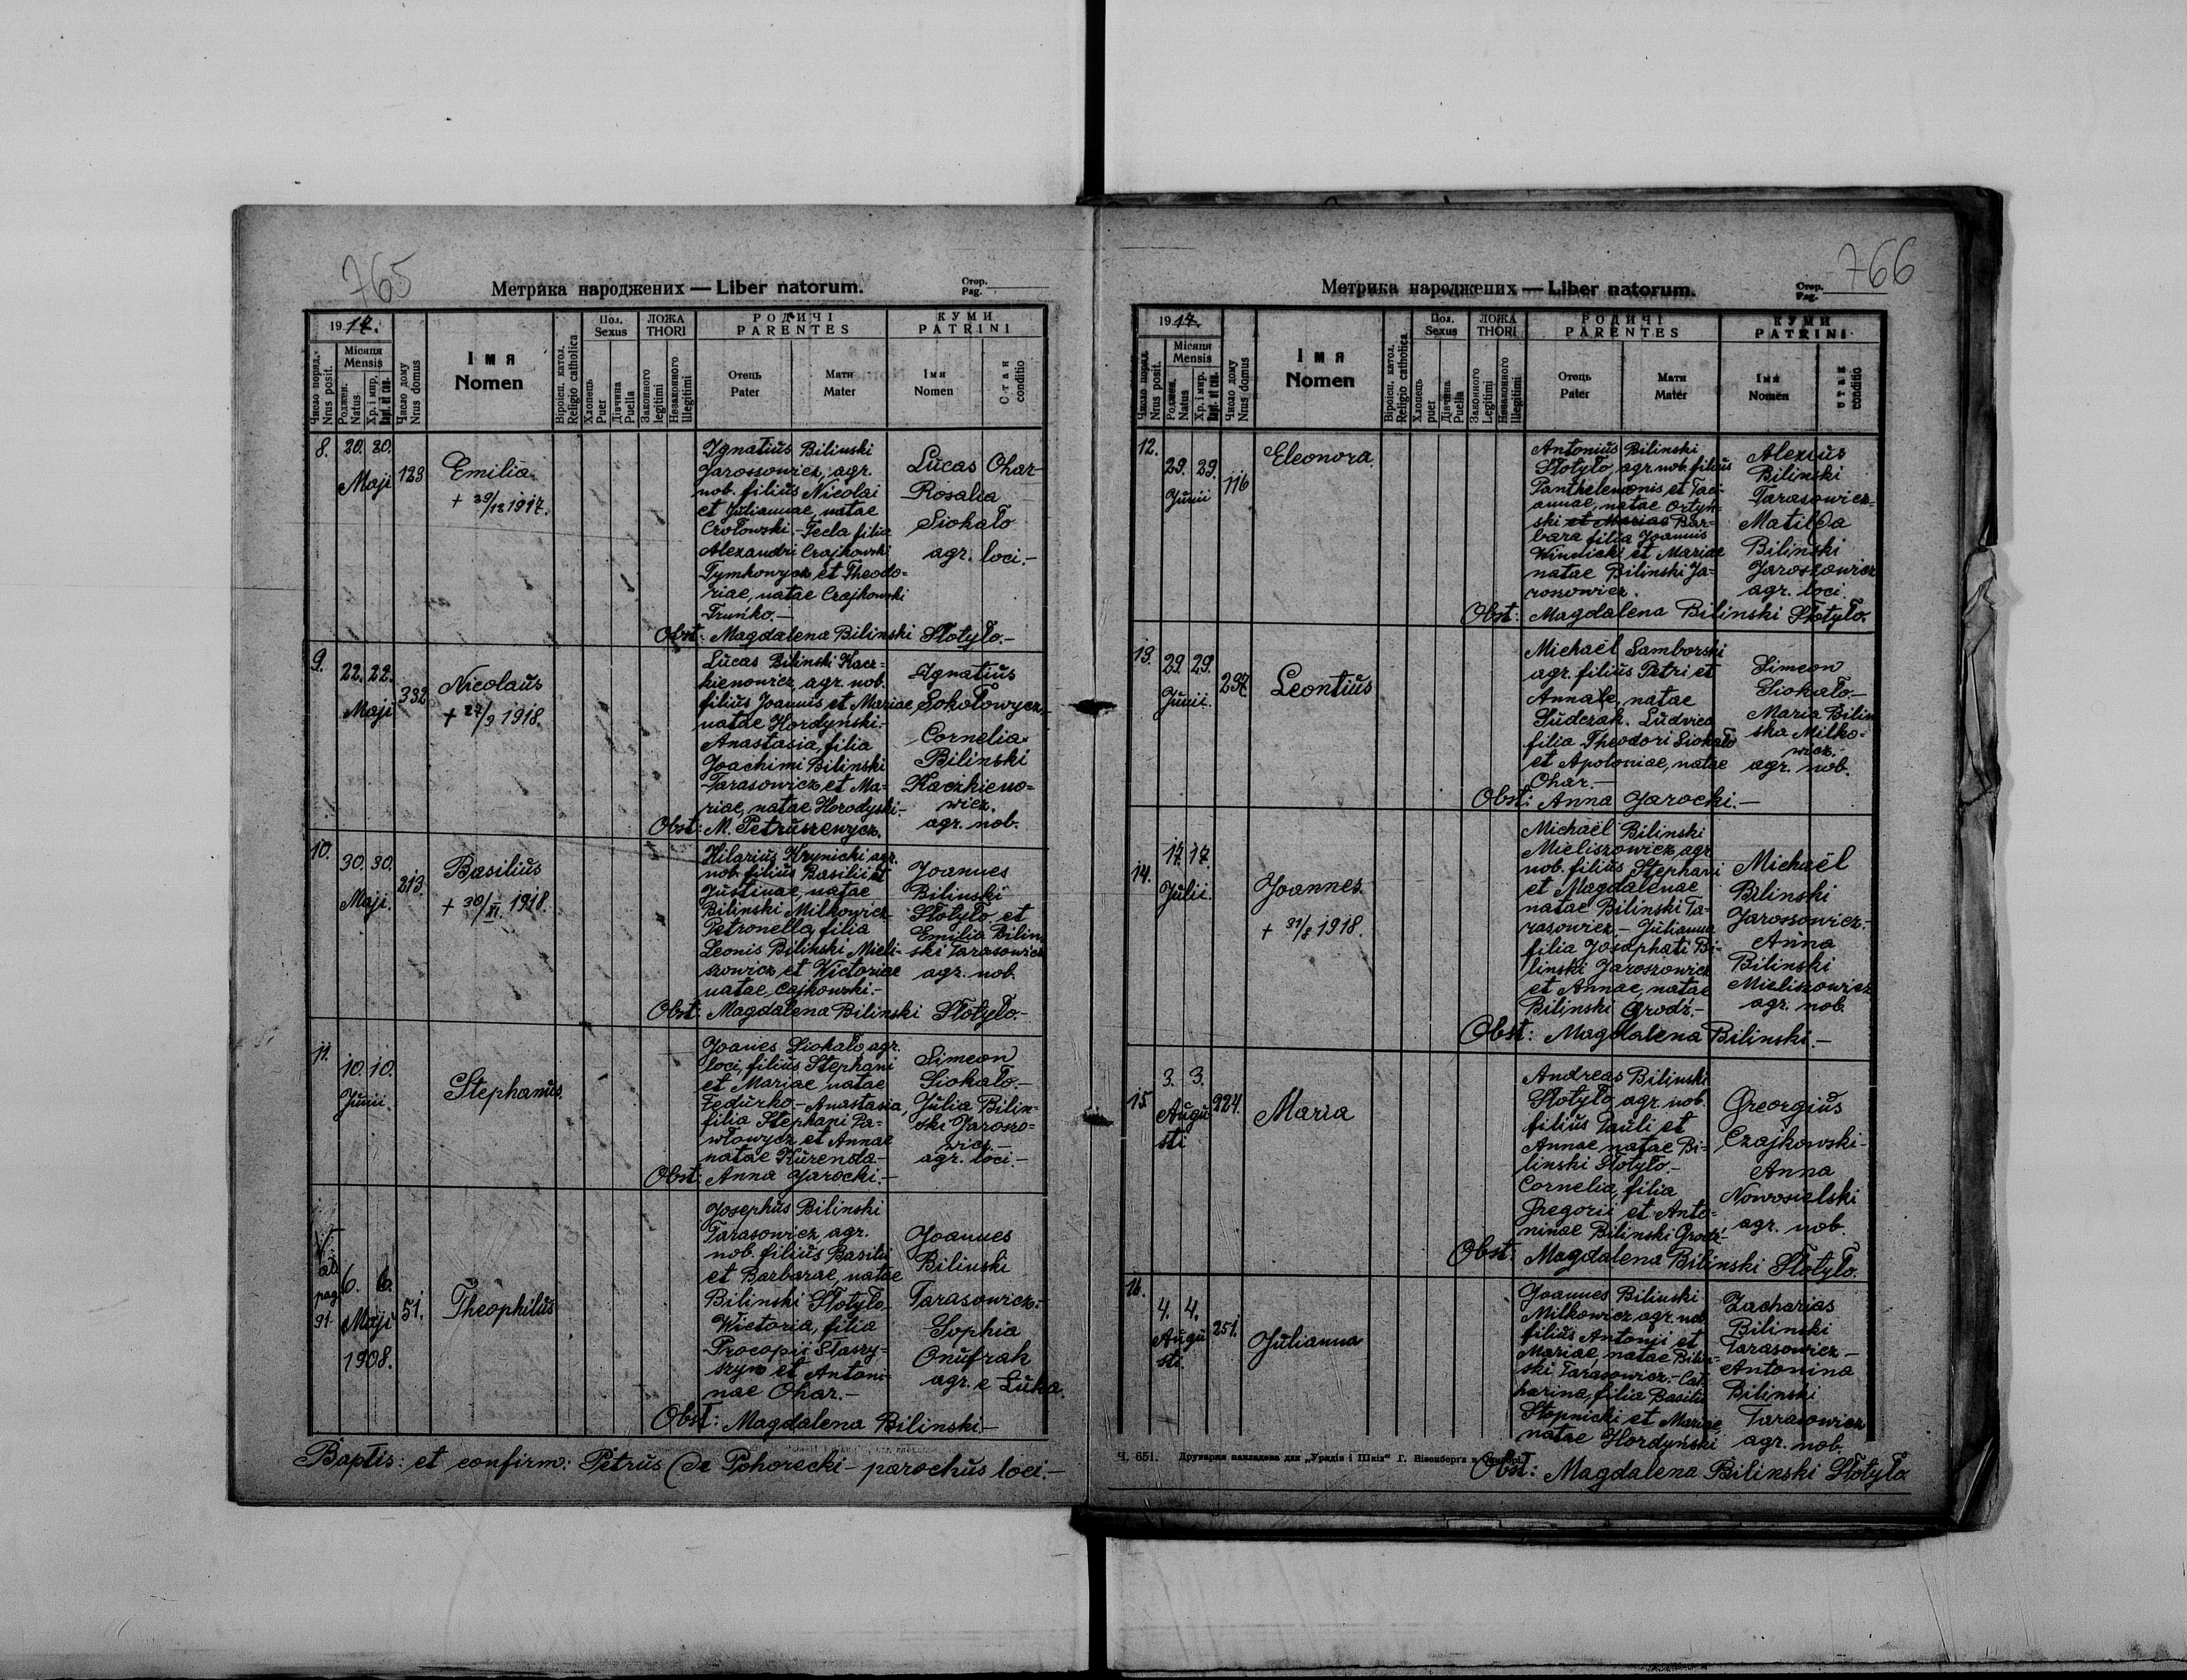 765
Метрика народжених — Liber natorum.
Стор.
Pag.
1917.
Число поряд.
Nrus posit.
Місяця
Mensis
Роджен.
Natus.
Хр. і мир.
Bapt. et con.
Число дому
Nrus domus
Імя
Nomen
Віроісп. катол.
Religio catholica
Пол.
Sexus
Хлопець
Puer
Дівчина
Puella
ЛОЖА
THORI
Законного
legitimi
Незаконного
illegitimi
РОДИЧІ
PARENTES
Отець
Pater
Мати
Mater
КУМИ
PATRINI
Імя
Nomen
Стан
conditio
8.
20. 20.
Maji
123
Emilia
+ 29/12 1917.
Ignatius Bilinski
Jarossowicz, agr.
nob. filius Nicolai
et Juliannae, natae
Crotowski.- Tecla filia
Alexandri Czajkowski
Tymkowycz et Theodo=
riae, natae Czajkowski
Fruńko.-
Lucas Ohar
Rosalia
Siokało
agr. loci.-
Obst: Magdalena Bilinski Słotyło.-
9.
22. 22.
Maji
332
Nicolaus
+ 27/9 1918.
Lucas Bilinski Kacz=
kienowicz, agr. nob.
filius Joannis et Mariae
natae Hordyński.-
Anastasia, filia
Joachimi Bilinski
Tarasowicz et Ma=
riae, natae Horodyski.-
Ignatius
Sokołowycz
Cornelia
Bilinski
Kaczkieno=
wicz.
agr. nob.
Obst: M. Petruszewycz.
10.
30. 30.
Maji.
213.
Basilius
+ 30/XI 1918.
Hilarius Krynicki agr.
nob. filius Basilii et
Justinae natae
Bilinski Milkowicz
Petronella, filia
Leonis Bilinski Mieli-
szowicz et Wictoriae
natae Cajkowski.-
Joannes
Bilinski
Słotyło et
Emilia Bilin
ski Tarasowicz
agr. nob.
Obst: Magdalena Bilinski Słotyło.-
11.
10. 10.
Junii.
Stephanus
Joanes Siokało agr.
loci, filius Stephani
et Mariae natae
Fedurko - Anastasia,
filia Stephani Pa-
włowycz et Annae
natae Kurenda-
Simeon
Siokało.-
Julia Bilin=
ski Jaroszo=
wicz -
agr. loci.-
Obst: Anna Jarocki.-
ad
pag
91.
6. 6.
Maji
1908.
51.
Theophilus
Josephus Bilinski
Tarasowicz, agr.
nob. filius Basilii
et Barbarae, natae
Bilinski Słotyło
Wictoria, filia
Procopii Staszy-
szyn et Antoni-
nae Ohar.-
Joannes
Bilinski
Tarasowicz.-
Sophia
Onufrak
agr. e Łuka.
Obst: Magdalena Bilinski.-
Baptis: et confirm: Petrus de Pohorecki - parochus loci.-
766
Метрика народжених — Liber natorum.
Стор.
Pag.
1917.
Число поряд.
Nrus posit.
Місяця
Mensis
Роджен.
Natus
Хр. і мир.
Bapt. et con.
Число дому
Nrus domus
Імя
Nomen
Віроісп. катол.
Religio catholica
Пол.
Sexus
Хлопець
puer
Дівчина
Puella
ЛОЖА
THORI
Законного
Legitimi
Незаконного
illegitimi
РОДИЧІ
PARENTES
Отець
Pater
Мати
Mater
КУМИ
PATRINI
Імя
Nomen
Стан
conditio
12.
29. 29.
Junii
116
Eleonora.
Antonius Bilinski
Słotyło, agr. nob. filius
Panthelemonis et Taci-
annae, natae Ortyń-
ski et Mariae Bar-
bara filia Joannis
Winnicki et Mariae
natae Bilinski Ja-
rossowicz.
Alexius
Bilinski
Tarasowicz.
Matilda
Bilinski
Jaroszowicz
agr. loci.
Obst: Magdalena Bilinski Słotyło.
13.
29. 29.
Junii.
237
Leontius
Michaël Samborski
agr. filius Petri et
Annae, natae
Sudczak. Ludvica
filia Theodori Siokało
et Apoloniae, natae
Ohar.-
Simeon
Siokało.-
Maria Bilin
ska Milko-
wicz.-
agr. nob.
Obst: Anna Jarocki.-
14.
17. 17.
Julii.
Joannes.
+ 31/8 1918.
Michaël Bilinski
Mieliszowicz agr.
nob. filius Stephani
et Magdalenae
natae Bilinski Ta-
rasowicz.- Julianna
filia Josaphati Bi-
linski Jaroszowicz
et Annae, natae
Bilinski Grodź.-
Michaël
Bilinski
Jarossowicz.-
Anna
Bilinski
Mieliszowicz
agr. nob.
Obst: Magdalena Bilinski.-
15
3. 3.
Augu
sti
224.
Maria
Andreas Bilinski
Słotyło agr. nob.
filius Pauli et
Annae natae Bi-
linski Słotyło.-
Cornelia, filia
Gregorii et Anto-
ninae Bilinski Grodź-
Greorgius
Czajkowski-
Anna
Nowosielski
agr. nob.
Obst: Magdalena Bilinski Słotyło.
16.
4. 4.
Augu
sti.
251.
Julianna
Joannes Bilinski
Milkowicz, agr. nob
filius Antonii et
Mariae, natae Bilin-
ski Tarasowicz.- Cat
harina, filia Basilii
Stopnicki et Mariae,
natae Hordyński
Zacharias
Bilinski
Tarasowicz-
Antonina
Bilinski
Tarasowicz
agr. nob.
Ч. 651. Друкарня накладова для „Урядів і Шкіл“ Г. Візенберга
Obst: Magdalena Bilinski Słotyło